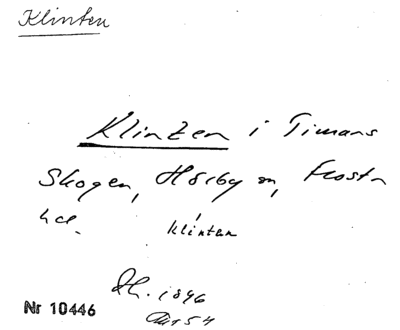 Klinten
Klinten i Timans
Skogen, Hörby sn, Frosta
hd. klintan
1896
Nr 10446